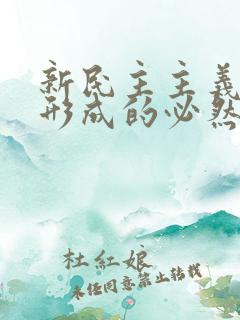 新民主主義
形成的必然
杜紅娘
未经同意禁止转载